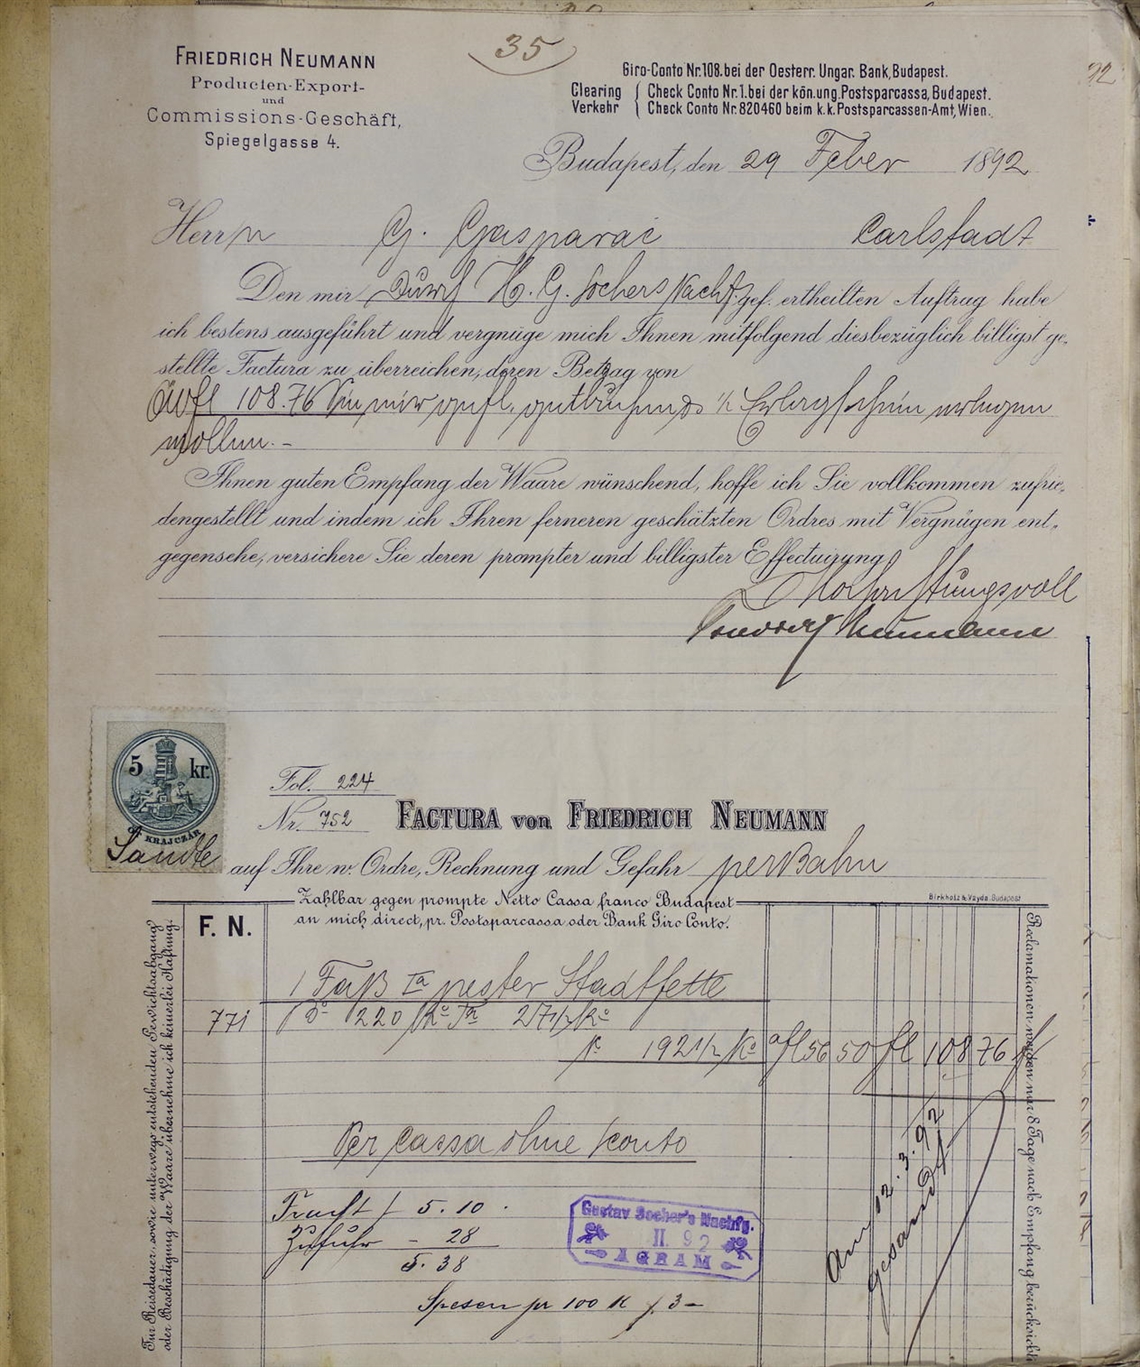 35
92
FRIEDRICH NEUMANN
Producten-Export-
und
Commissions-Geschäft,
Spiegelgasse 4.
Giro-Conto Nr.108. bei der Oesterr. Ungar. Bank, Budapest.
Clearing Verkehr { Check Conto Nr.1. bei der kön. ung. Postsparcassa, Budapest.
Check Conto Nr. 820460 beim k.k. Postsparcassen-Amt, Wien.
Budapest, den 29 Feber 1892
Herrn G. Gasparac Carlstadt
Den mir durch H. G. Sochers Nachf. gef. ertheilten Auftrag habe
ich bestens ausgeführt und vergnüge mich Ihnen mitfolgend diesbezüglich billigst ge-
stellte Factura zu überreichen, deren Betrag von
108.76 Sie mir gefl. gutbringen Erlagschein erlegen
wollen. –
Ihnen guten Empfang der Waare wünschend, hoffe ich Sie vollkommen zufrie-
dengestellt und indem ich Ihren ferneren geschätzten Ordres mit Vergnügen ent-
gegensehe, versichere Sie deren prompter und billigster Effectuirung
Hochachtungsvoll
Friedrich Neumann
5 kr.
KRAJCZÁR
Fol. 224
Nr. 752
FACTURA von FRIEDRICH NEUMANN
auf Ihre w. Ordre, Rechnung und Gefahr per Bahn
Zahlbar gegen prompte Netto Cassa franco Budapest
an mich direct, pr. Postsparcassa oder Bank Giro Conto.
Birkholz & Vayda. Budapest
F. N.
1 Faß Ia pester Stadtfette
771 220 Ko Ta 27 1/2 Ko
192 1/2 Ko fl 56 50 fl 108 76
Per Cassa ohne Sconto
Fracht f 5. 10.
Zufuhr – 28
5. 38
Spesen pr 100 K f 3 –
Gustav Socher's Nachfg.
II. 92
AGRAM
Am 12. 3. 92
gesandt
Für Reisedauer, sowie unterwegs entstehenden Gewichtsabgang
oder Beschädigung der Waare übernehme ich keinerlei Haftung.
Reclamationen werden nur 8 Tage nach Empfang berücksichti